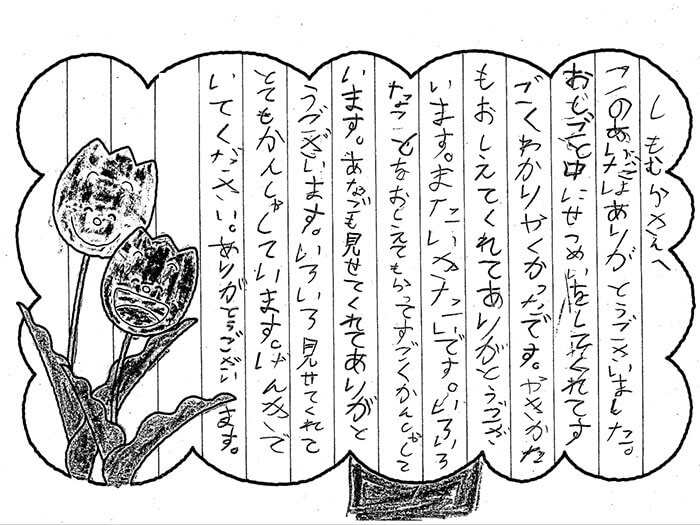 しもむらさんへ
このあいだはありがとうございました。
おしごと中にせつめいをしてくれてす
ごくわかりやくかったです。やさかた
もおしえてくれてありがとうござ
います。またいきたいです。いろいろ
なことをおしえてもらってすごくかんしゃして
います。あなでも見せてくれてありがと
うございます。いろいろ見せてくれて
とてもかんしゃしています。げんきで
いてください。ありがとうございます。